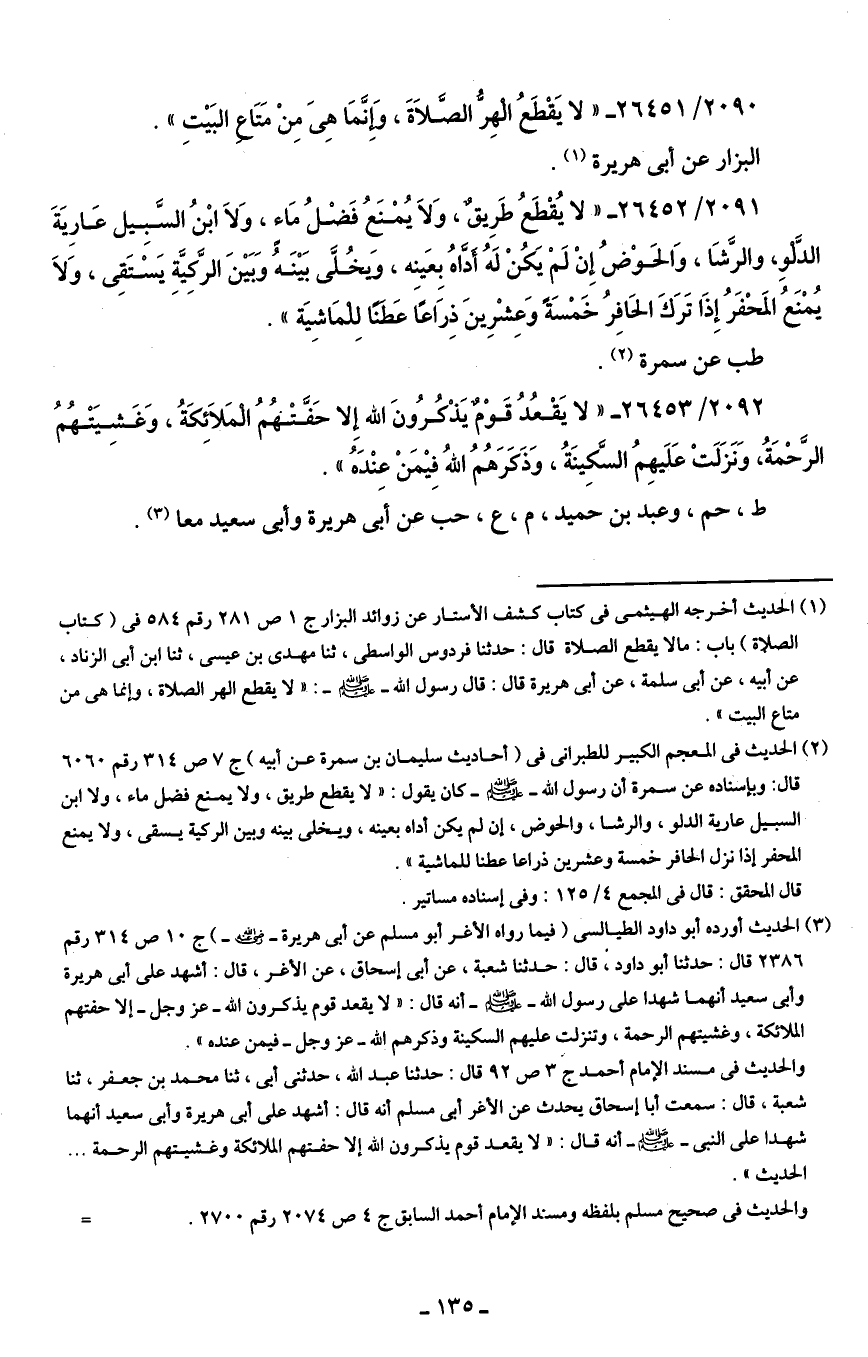 ٢٠٩٠/ ٢٦٤٥١ـ « لا يَقْطَعُ الْهِرُّ الصَّلاَةَ ، وَإِنَّمَا هِىَ مِنْ مَتَاعِ البَيْتِ » .
البزار عن أبى هريرة (١) .
٢٠٩١/ ٢٦٤٥٢ـ « لا يُقْطَعُ طَرِيقٌ، وَلاَ يُمْنَعُ فَضْلُ مَاء ، وَلاَ ابْنُ السَّبِيل عَارِيَةَ
الدَّلْوِ، والرَّشَا ، وَالحَوْضُ إِنْ لَمْ يَكُنْ لَهُ أدَّاهُ بِعَينِه ، وَيخُلَّى بَيْنَهُ وَبَيْنَ الرَّكِيَّةِ يَسْتَقِى ، وَلاَ
يُمْنَعُ المَحْفَرُ إِذَا تَرَكَ الحَافِرُ خَمْسَةً وَعِشْرِينَ ذِرَاعًا عَطَنًا لِلْمَاشِيَة » .
طب عن سمرة (٢) .
٢٠٩٢/ ٢٦٤٥٣ـ « لا يَقْعُدُ قَوْمٌ يَذْكُرُونَ الله إِلا حَفَّتْهُمُ الْمَلاَئِكَةُ ، وَغَشِيَتْهُمُ
الرَّحْمَةُ، وَنَزَلَتْ عَلَيهِمُ السَّكِينَةُ ، وَذَكَرَهُمُ اللهُ فِيْمَنْ عِنْدَهُ » .
ط ، حم ، وعبد بن حميد ، م ، ع ، حب عن أبى هريرة وأبى سعيد معا (٣) .
(١) الحديث أخرجه الهيثمى فى كتاب كشف الأستار عن زوائد البزار ج ١ ص ٢٨١ رقم ٥٨٤ فى ( كتاب
الصلاة ) باب : مالا يقطع الصلاة قال : حدثنا فردوس الواسطى ، ثنا مهدى بن عيسى ، ثنا ابن أبى الزناد ،
عن أبيه ، عن أبى سلمة ، عن أبى هريرة قال : قال رسول الله ـ ﷺ ـ : « لا يقطع الهر الصلاة ، وإنما هى من
متاع البيت » .
(٢) الحديث فى المعجم الكبير للطبرانى فى ( أحاديث سليمان بن سمرة عن أبيه ) ج ٧ ص ٣١٤ رقم ٦٠٦٠
قال: وبإسناده عن سمرة أن رسول الله ـ ﷺ ـ كان يقول : « لا يقطع طريق ، ولا يمنع فضل ماء ، ولا ابن
السبيل عارية الدلو ، والرشا ، والحوض ، إن لم يكن أداه بعينه ، ويخلى بينه وبين الركية يسقى ، ولا يمنع
المحفر إذا نزل الحافر خمسة وعشرين ذراعا عطنا للماشية » .
قال المحقق : قال فى المجمع ٤/ ١٢٥ : وفى إسناده مساتير .
(٣) الحديث أورده أبو داود الطيالسى ( فيما رواه الأغر أبو مسلم عن أبى هريرة ـ رضي الله عنه ـ ) ج ١٠ ص ٣١٤ رقم
٢٣٨٦ قال : حدثنا أبو داود ، قال : حدثنا شعبة ، عن أبى إسحاق ، عن الأغر ، قال : أشهد على أبى هريرة
وأبى سعيد أنهما شهدا على رسول الله ـ ﷺ ـ أنه قال : « لا يقعد قوم يذكرون الله ـ عز وجل ـ إلا حفتهم
الملائكة ، وغشيتهم الرحمة ، وتنزلت عليهم السكينة وذكرهم الله ـ عز وجل ـ فيمن عنده » .
والحديث فى مسند الإمام أحمد ج ٣ ص ٩٢ قال : حدثنا عبد الله ، حدثنى أبى ، ثنا محمد بن جعفر ، ثنا
شعبة ، قال : سمعت أبا إسحاق يحدث عن الأغر أبى مسلم أنه قال : أشهد على أبى هريرة وأبى سعيد أنهما
شهدا على النبى ـ ﷺ ـ أنه قال : « لا يقعد قوم يذكرون الله إلا حفتهم الملائكة وغشيتهم الرحمة ...
الحديث » .
والحديث فى صحيح مسلم بلفظه ومسند الإمام أحمد السابق ج ٤ ص ٢٠٧٤ رقم ٢٧٠٠ . =
ـ ١٣٥ ـ